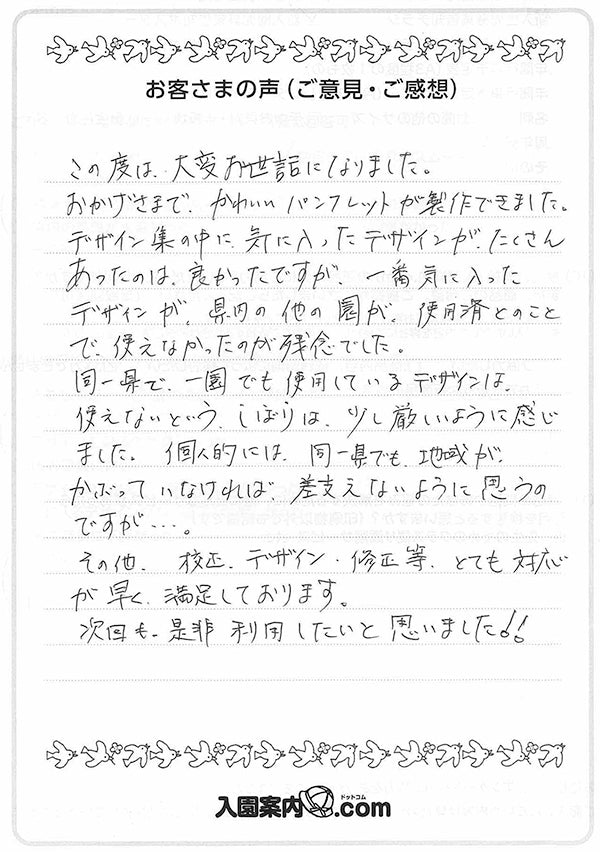 お客さまの声（ご意見・ご感想）
この度は、大変お世話になりました。
おかげさまで、かわいいパンフレットが製作できました。
デザイン集の中に、気に入ったデザインが、たくさん
あったのは、良かったですが、一番気に入った
デザインが、県内の他の園が、使用済とのこと
で、使えなかったのが残念でした。
同一県で、一園でも使用しているデザインは、
使えないという、しばりは、少し厳しいように感じ
ました。個人的には、同一県でも、地域が、
かぶっていなければ、差支えないように思うの
ですが・・・。
その他、校正、デザイン・修正等、とても対応
が早く、満足しております。
次回も、是非利用したいと思いました!!
入園案内ドットコム.com